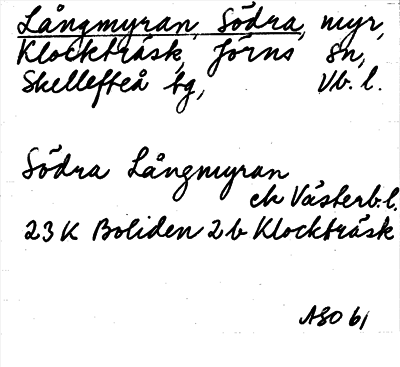 Långmyran, Södra, myr,
Klockträsk, Jörns sn,
Skellefteå tg, Vb. l.
Södra Långmyran
ek Västerb.l.
23 K Boliden 2 b Klockträsk
ASO 61